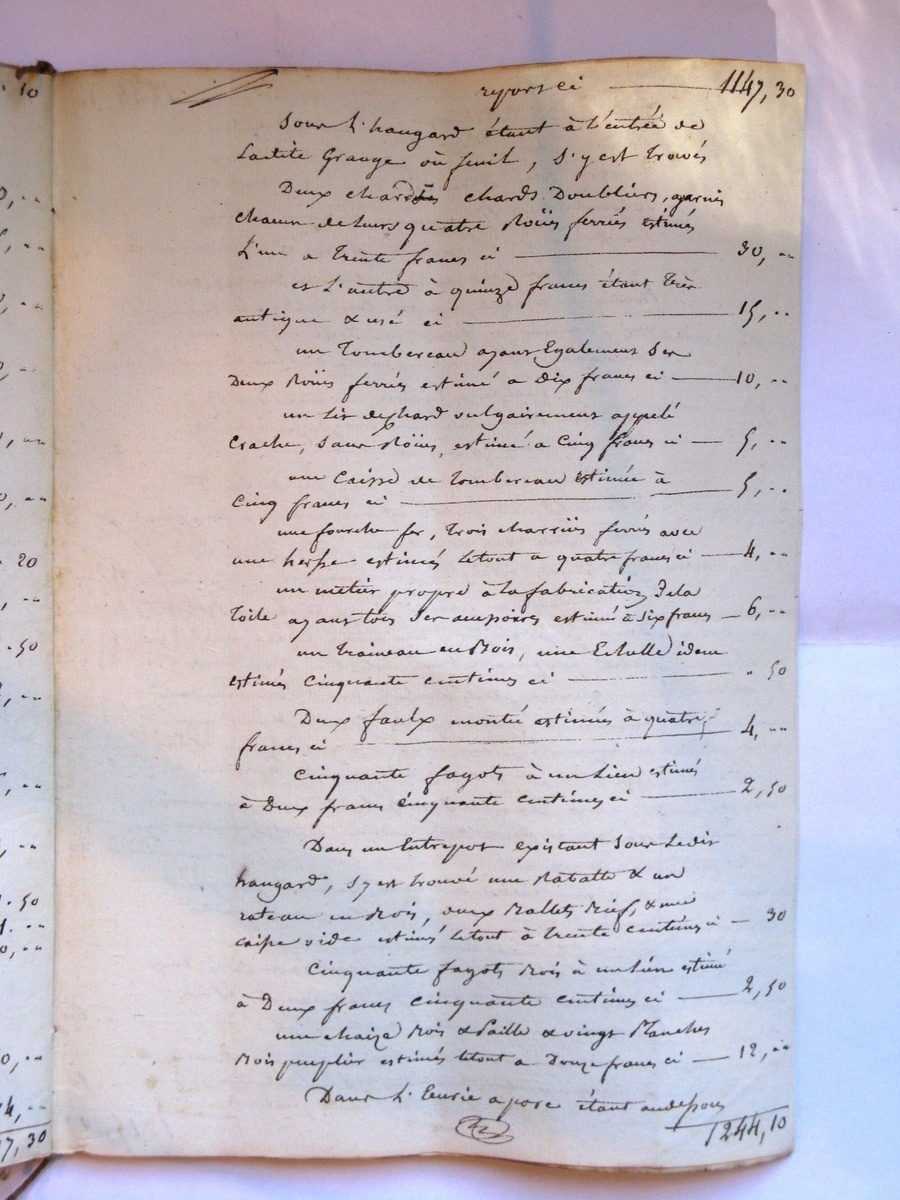 report ci 1147,30
Sous l'haugard étant à l'entrée de
Ladite Grange où fenil, s'y est trouvés
Deux chards Doubliers, garnis
chacun de leurs quatre Roües ferrées estimés
L'un a trente francs ci 30, ..
et L'autre à quinze francs étant très
antique & usé ci 15, ..
un Tombereau ayant Egalement ses
Deux Roües ferrées estimé a dix francs ci 10, ..
un lit de chard vulgairement appelé
Crache, sans Roües, estimé a Cinq francs ci 5, ..
une Caisse de tombereau Estimée à
Cinq francs ci 5, ..
une fourche fer, trois charrües ferrées avec
une herse estimés letout a quatre francs ci 4, ..
un métier propre à la fabrication de la
toile ayant tois ses estimé à six francs 6, ..
un traineau en Bois, une Echelle idem
estimés Cinquante centimes ci " 50
Deux faulx monté estimées à quatre
francs ci 4, ..
Cinquante fagots à un Lien estimés
à Deux francs Cinquante Centimes ci 2,50
Dans un Entrepot existant Sous Ledit
haugard, s'y est trouvé une Rabatte & un
rateau en Bois, deux & une
caisse vide estimés letout à trente Centimes ci 30
Cinquante fagots Bois à un Lien estimé
à Deux francs cinquante centimes ci 2,50
une chaize Bois & Paille & vingt Planches
Bois peuplier estimés letout a Douze francs ci 12, ..
Dans L' étant au dessous
1244,10
10
20
.50
.50
7,30